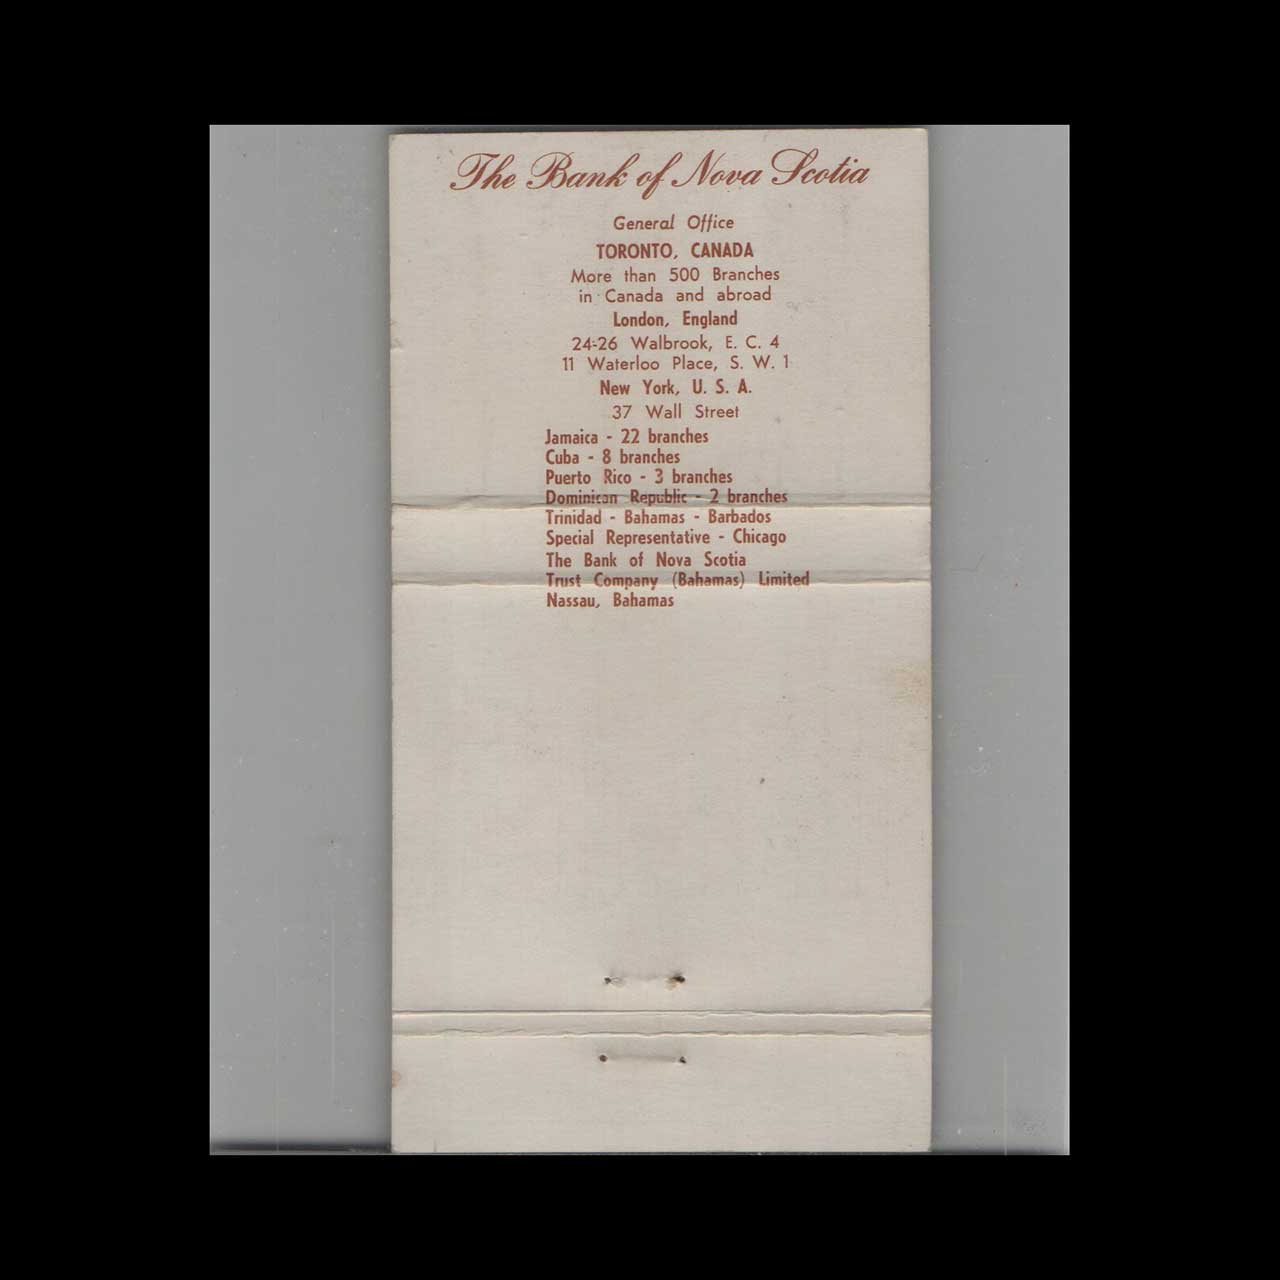 The Bank of Nova Scotia
General Office
TORONTO, CANADA
More than 500 Branches
in Canada and abroad
London, England
24-26 Walbrook, E. C. 4
11 Waterloo Place, S. W. 1
New York, U. S. A.
37 Wall Street
Jamaica - 22 branches
Cuba - 8 branches
Puerto Rico - 3 branches
Dominican Republic - 2 branches
Trinidad - Bahamas - Barbados
Special Representative - Chicago
The Bank of Nova Scotia
Trust Company (Bahamas) Limited
Nassau, Bahamas